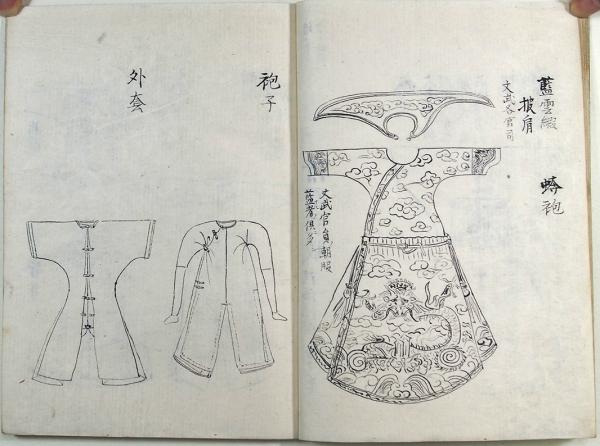 藍雲緞
披肩
文武各官司
蟒袍
文武官員朝服
藍者俱多
袍子
外套